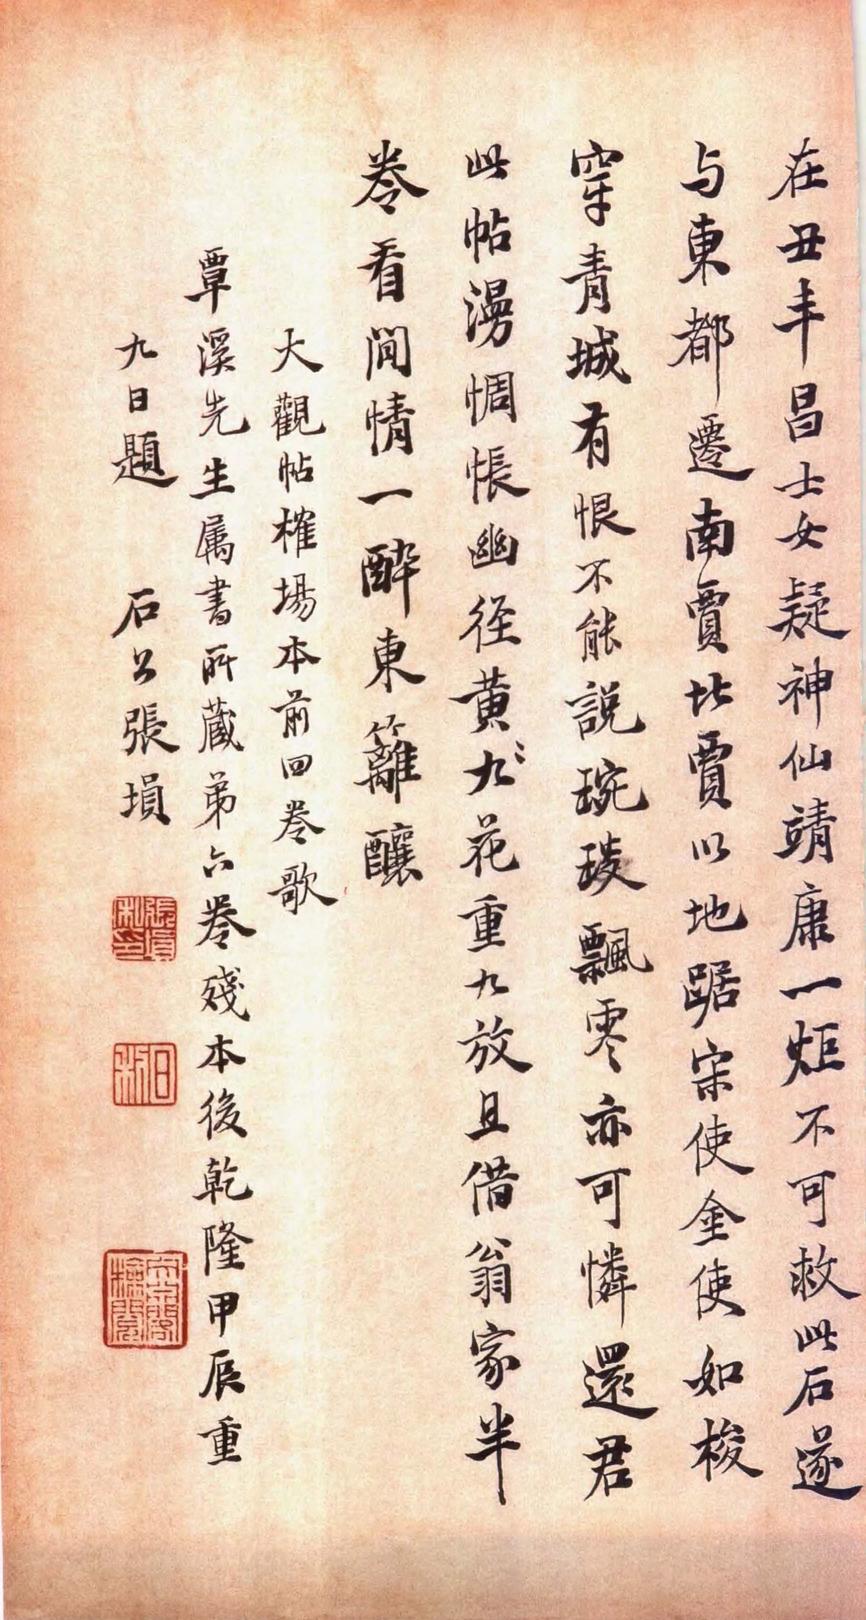 在丑年昌士女疑神仙靖康一炬不可救此石遂
与東都遷南賈北賈以地踞宋使金使如梭
穿青城有恨不能說琬琰飄零亦可憐還君
此帖漫惆悵幽徑黄九〻花重九放且借翁家半
卷看閒情一醉東籬釀
大觀帖榷場本前四卷歌
覃溪先生属書所藏弟六卷殘本後乾隆甲辰重
九日題 石公張塤
張塤私印